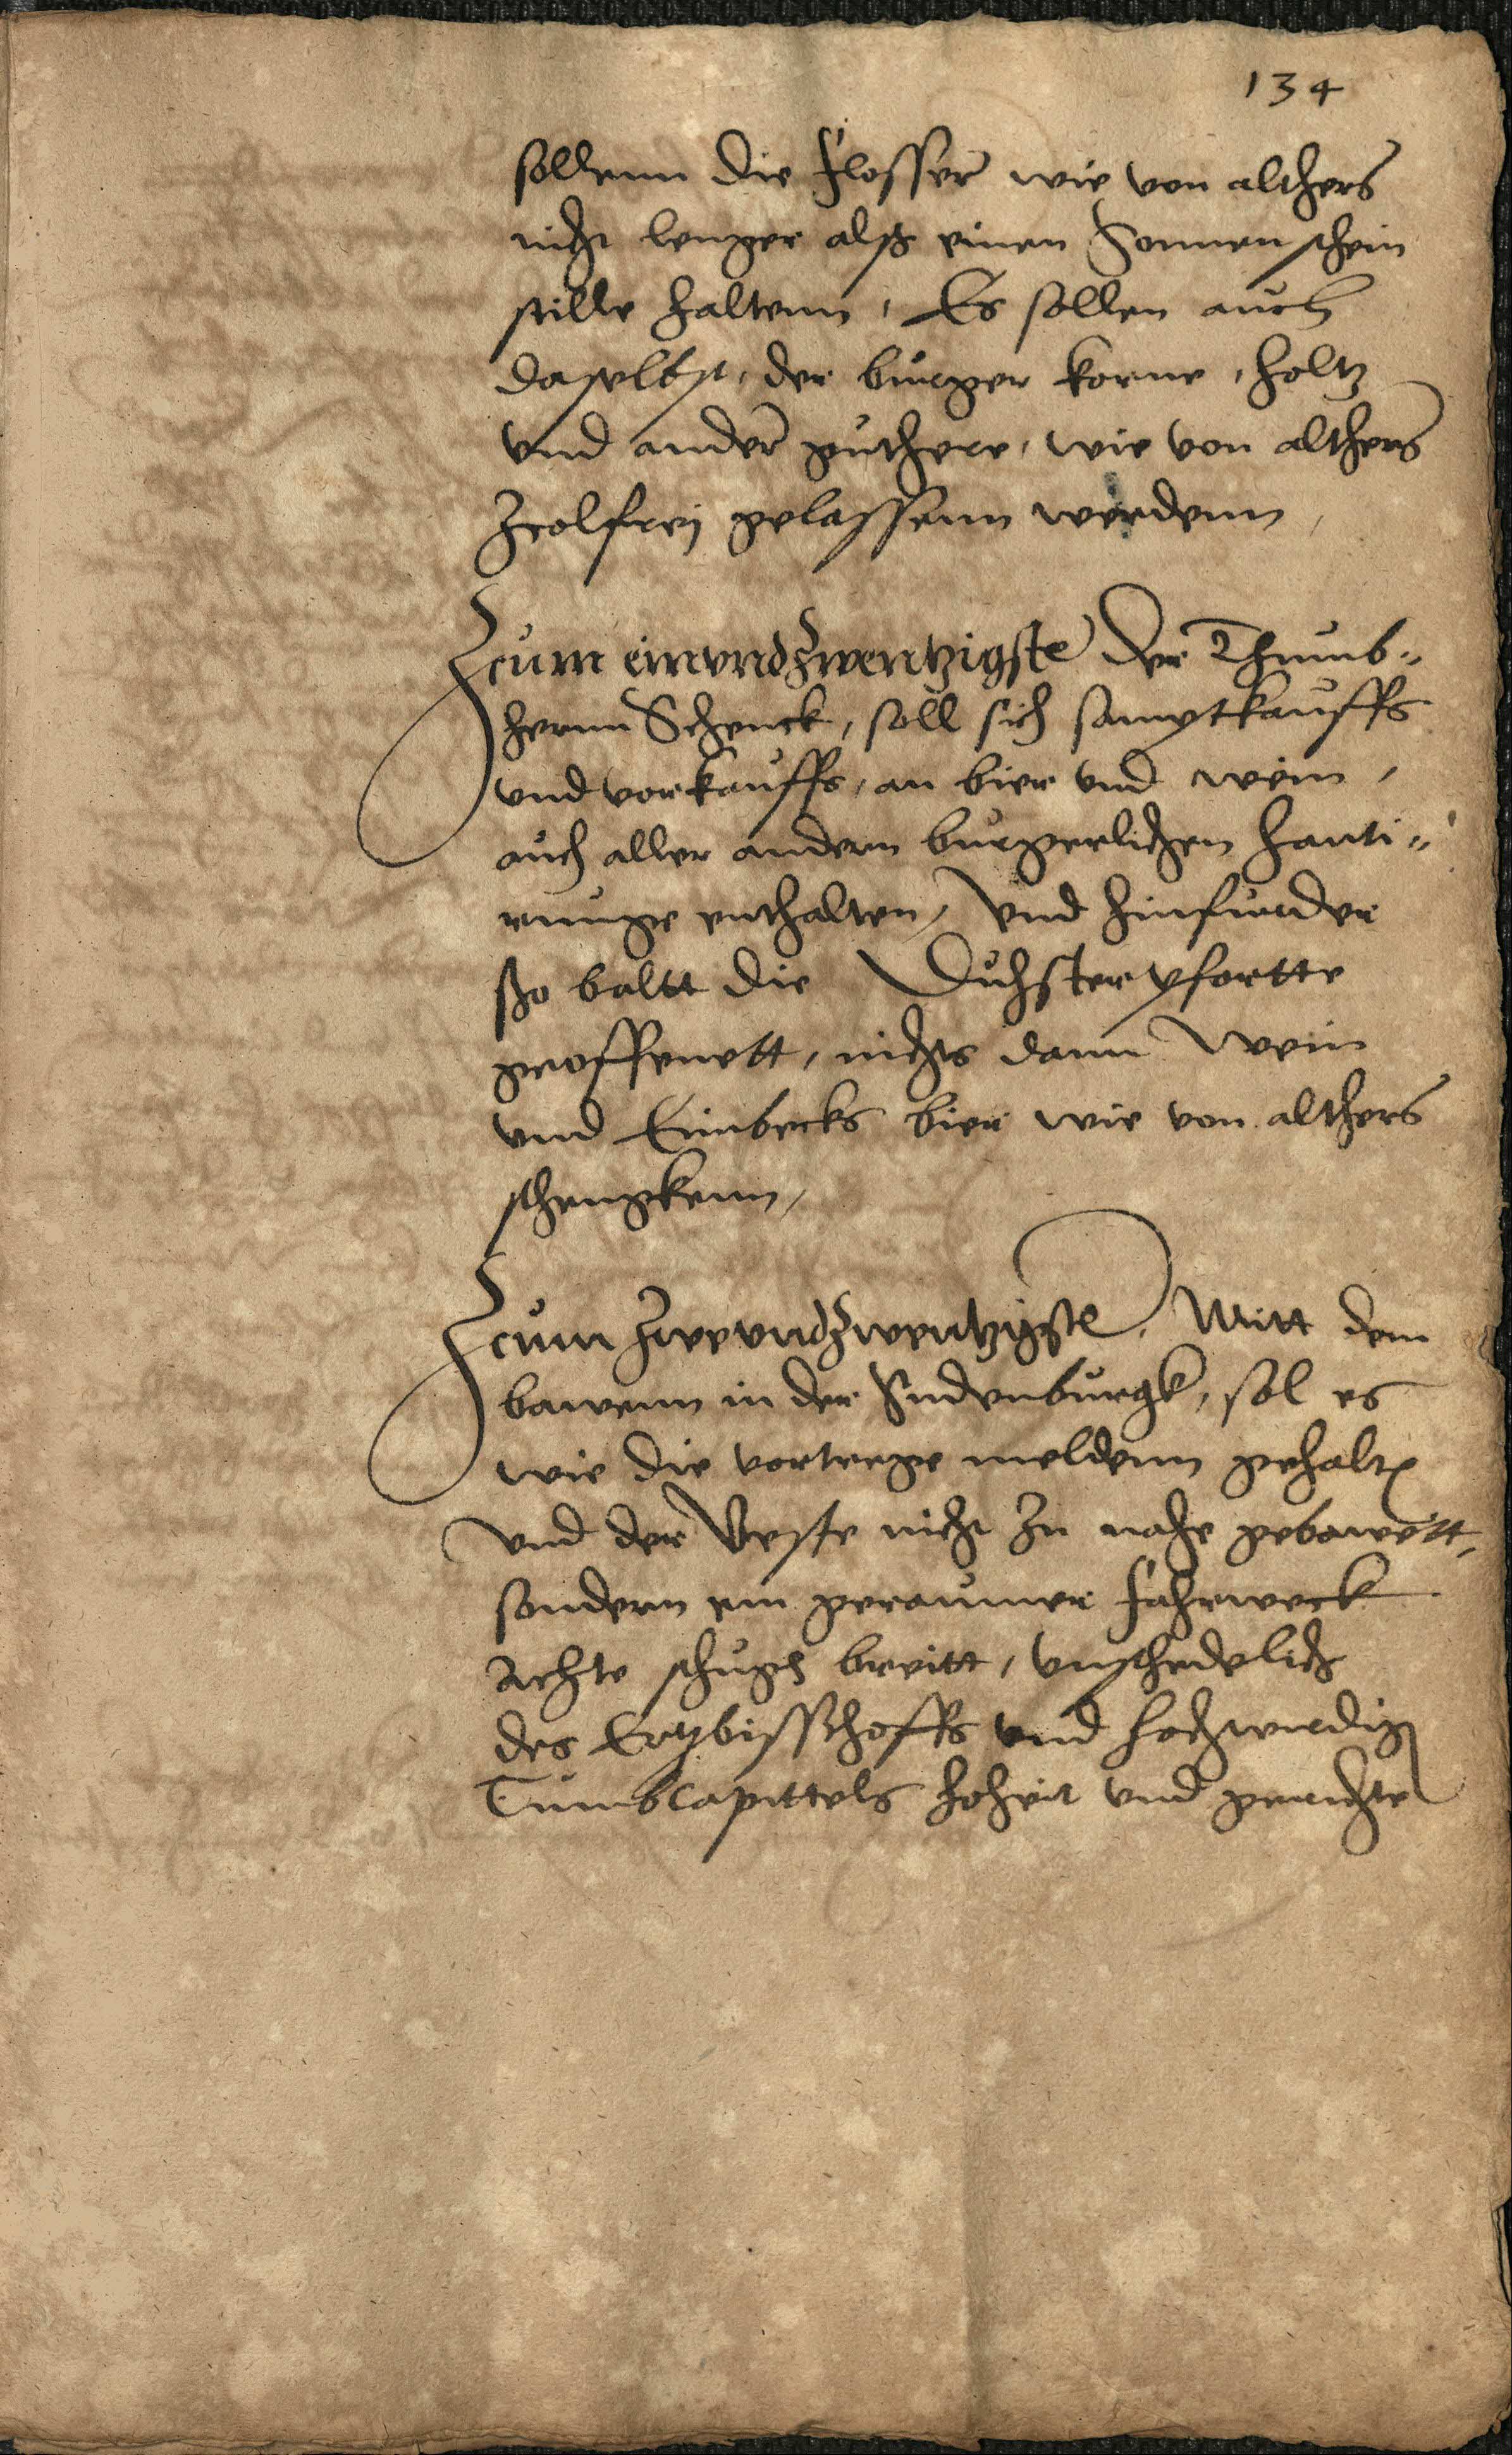 134
sollenn die Flosser wie von althers
nicht lenger alß einen Sonnenschein
stille haltenn, Es sollen auch
daselbst, der burger korne, holtz
vnd ander guthere, wie von althers
Zcolfrej gelassenn werdenn,
Zcum einvndzwentzigste Der Thumb-
hernn Schenck, soll sich samptkauffs
vnd vorkauffs, an bier vnd wein,
auch aller andern burgerlichen hanti-
runge enthalten, Vnd hinfurder
ßo baltt die Duhsterpfortte
geoffenett, nichts dann Wein
vnd Eimbecks bier wie von althers
schengkenn,
Zcum Zwevndzwentzigste, Mitt dem
bawenn in der Sudenburgk, sol es
wie die vortrege meldenn gehalt
vnd der Veste nicht zu nahe gebawett,
sondern ein geraumer fahrweck
Achte schugh breitt, vnschedelich
des Ertzbisschoffs vnd hochwurdig
Tumbcapittels hoheit vnd gerichte